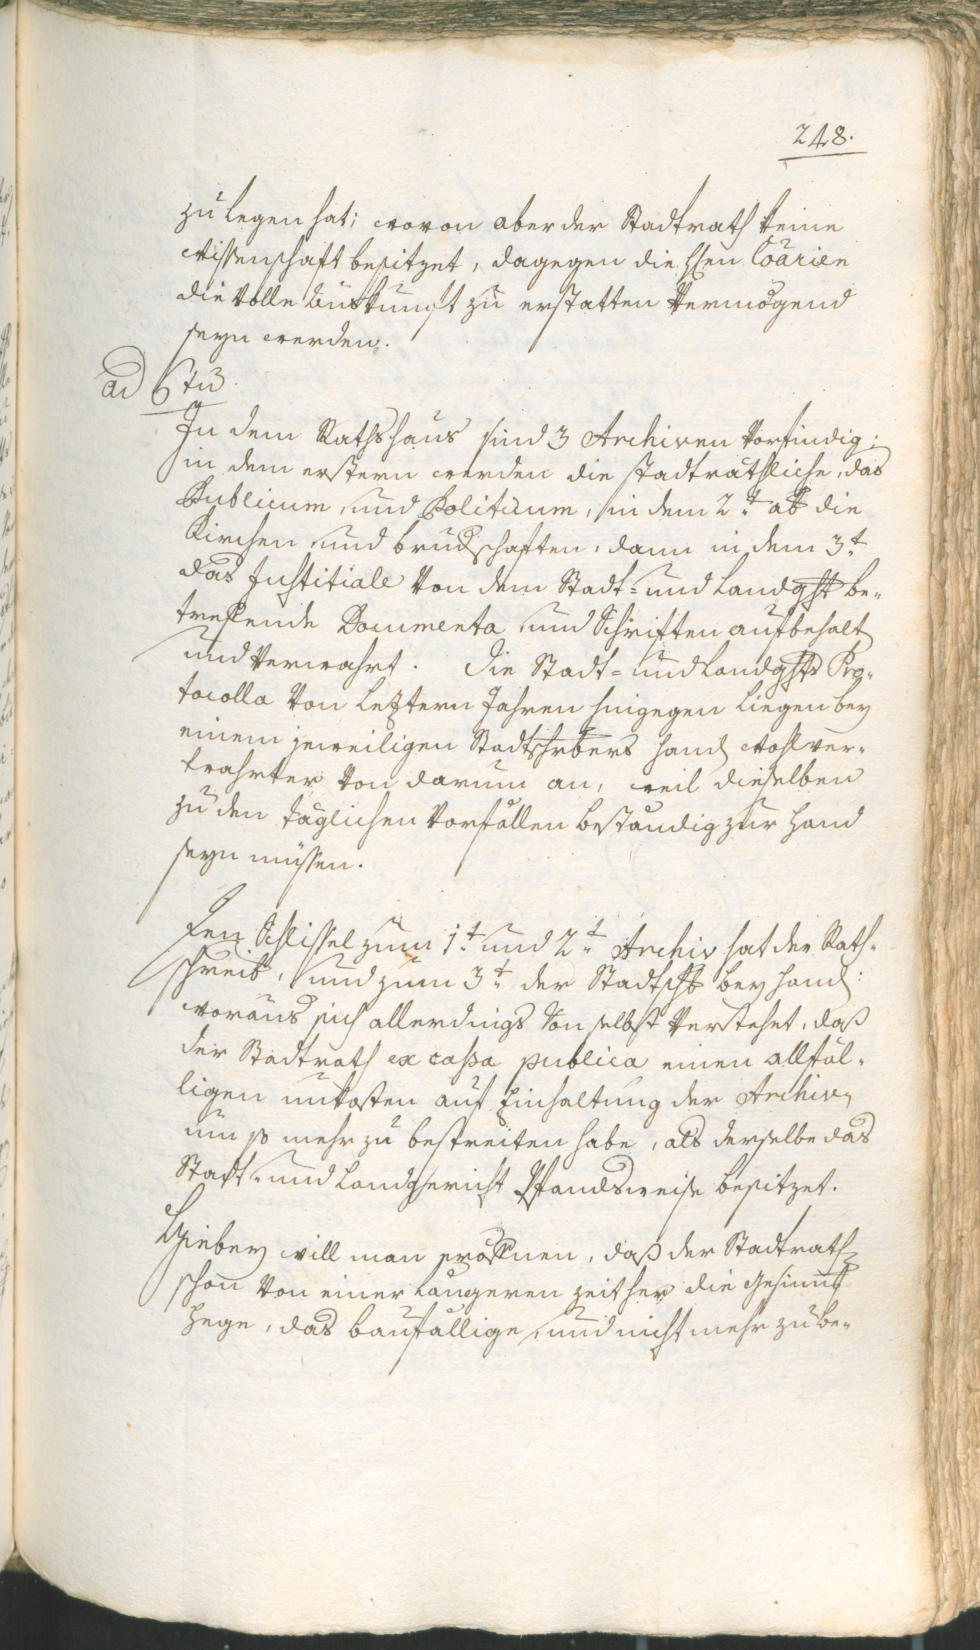 248.
zu legen hat; wovon aber der Stadtrath keine
Wissenschaft besitzet, dagegen die HHen Coârien
die volle Auskunft zu erstatten vermögend
seyn werden.
ad 6tū
In dem Rathshaus sind 3 Archiven vorfindig;
in dem erstern werden die stadträthliche, das
Publicum, und Politicum, in dem 2.t ab die
Kirchen und brudschaften, dann in dem 3.t
das Justitiale von dem Stadt- und Landght be-
treffende Documenta, und Schriften aufbehalt
und verwahrt. Die Stadt- und Landghts Pro-
tocolla von letztern Jahren hingegen liegen bey
einem jeweiligen Stadtschrbers hand wohl ver-
wahrter von darum an, weil dieselben
zu den täglichen Vorfällen beständig zur Hand
seyn müssen.
Den Schlissel zum 1.t und 2.t Archiv hat der Rath-
schreib, und zum 3.t der Stadtschb bey hand:
woraus sich allerdings von selbst verstehet, daß
der Stadtrath ex cassa publica einen allfäl-
ligen unkosten auf Einhaltung der Archiven
um so mehr zu bestreiten habe, als derselbe das
Stadt- und Landgericht Pfandsweise besitzet.
Hiebey will man eröffnen, daß der Stadtrath
schon von einer längeren zeit her die Gesinnung
hege, das baufällige, und nicht mehr zu be-